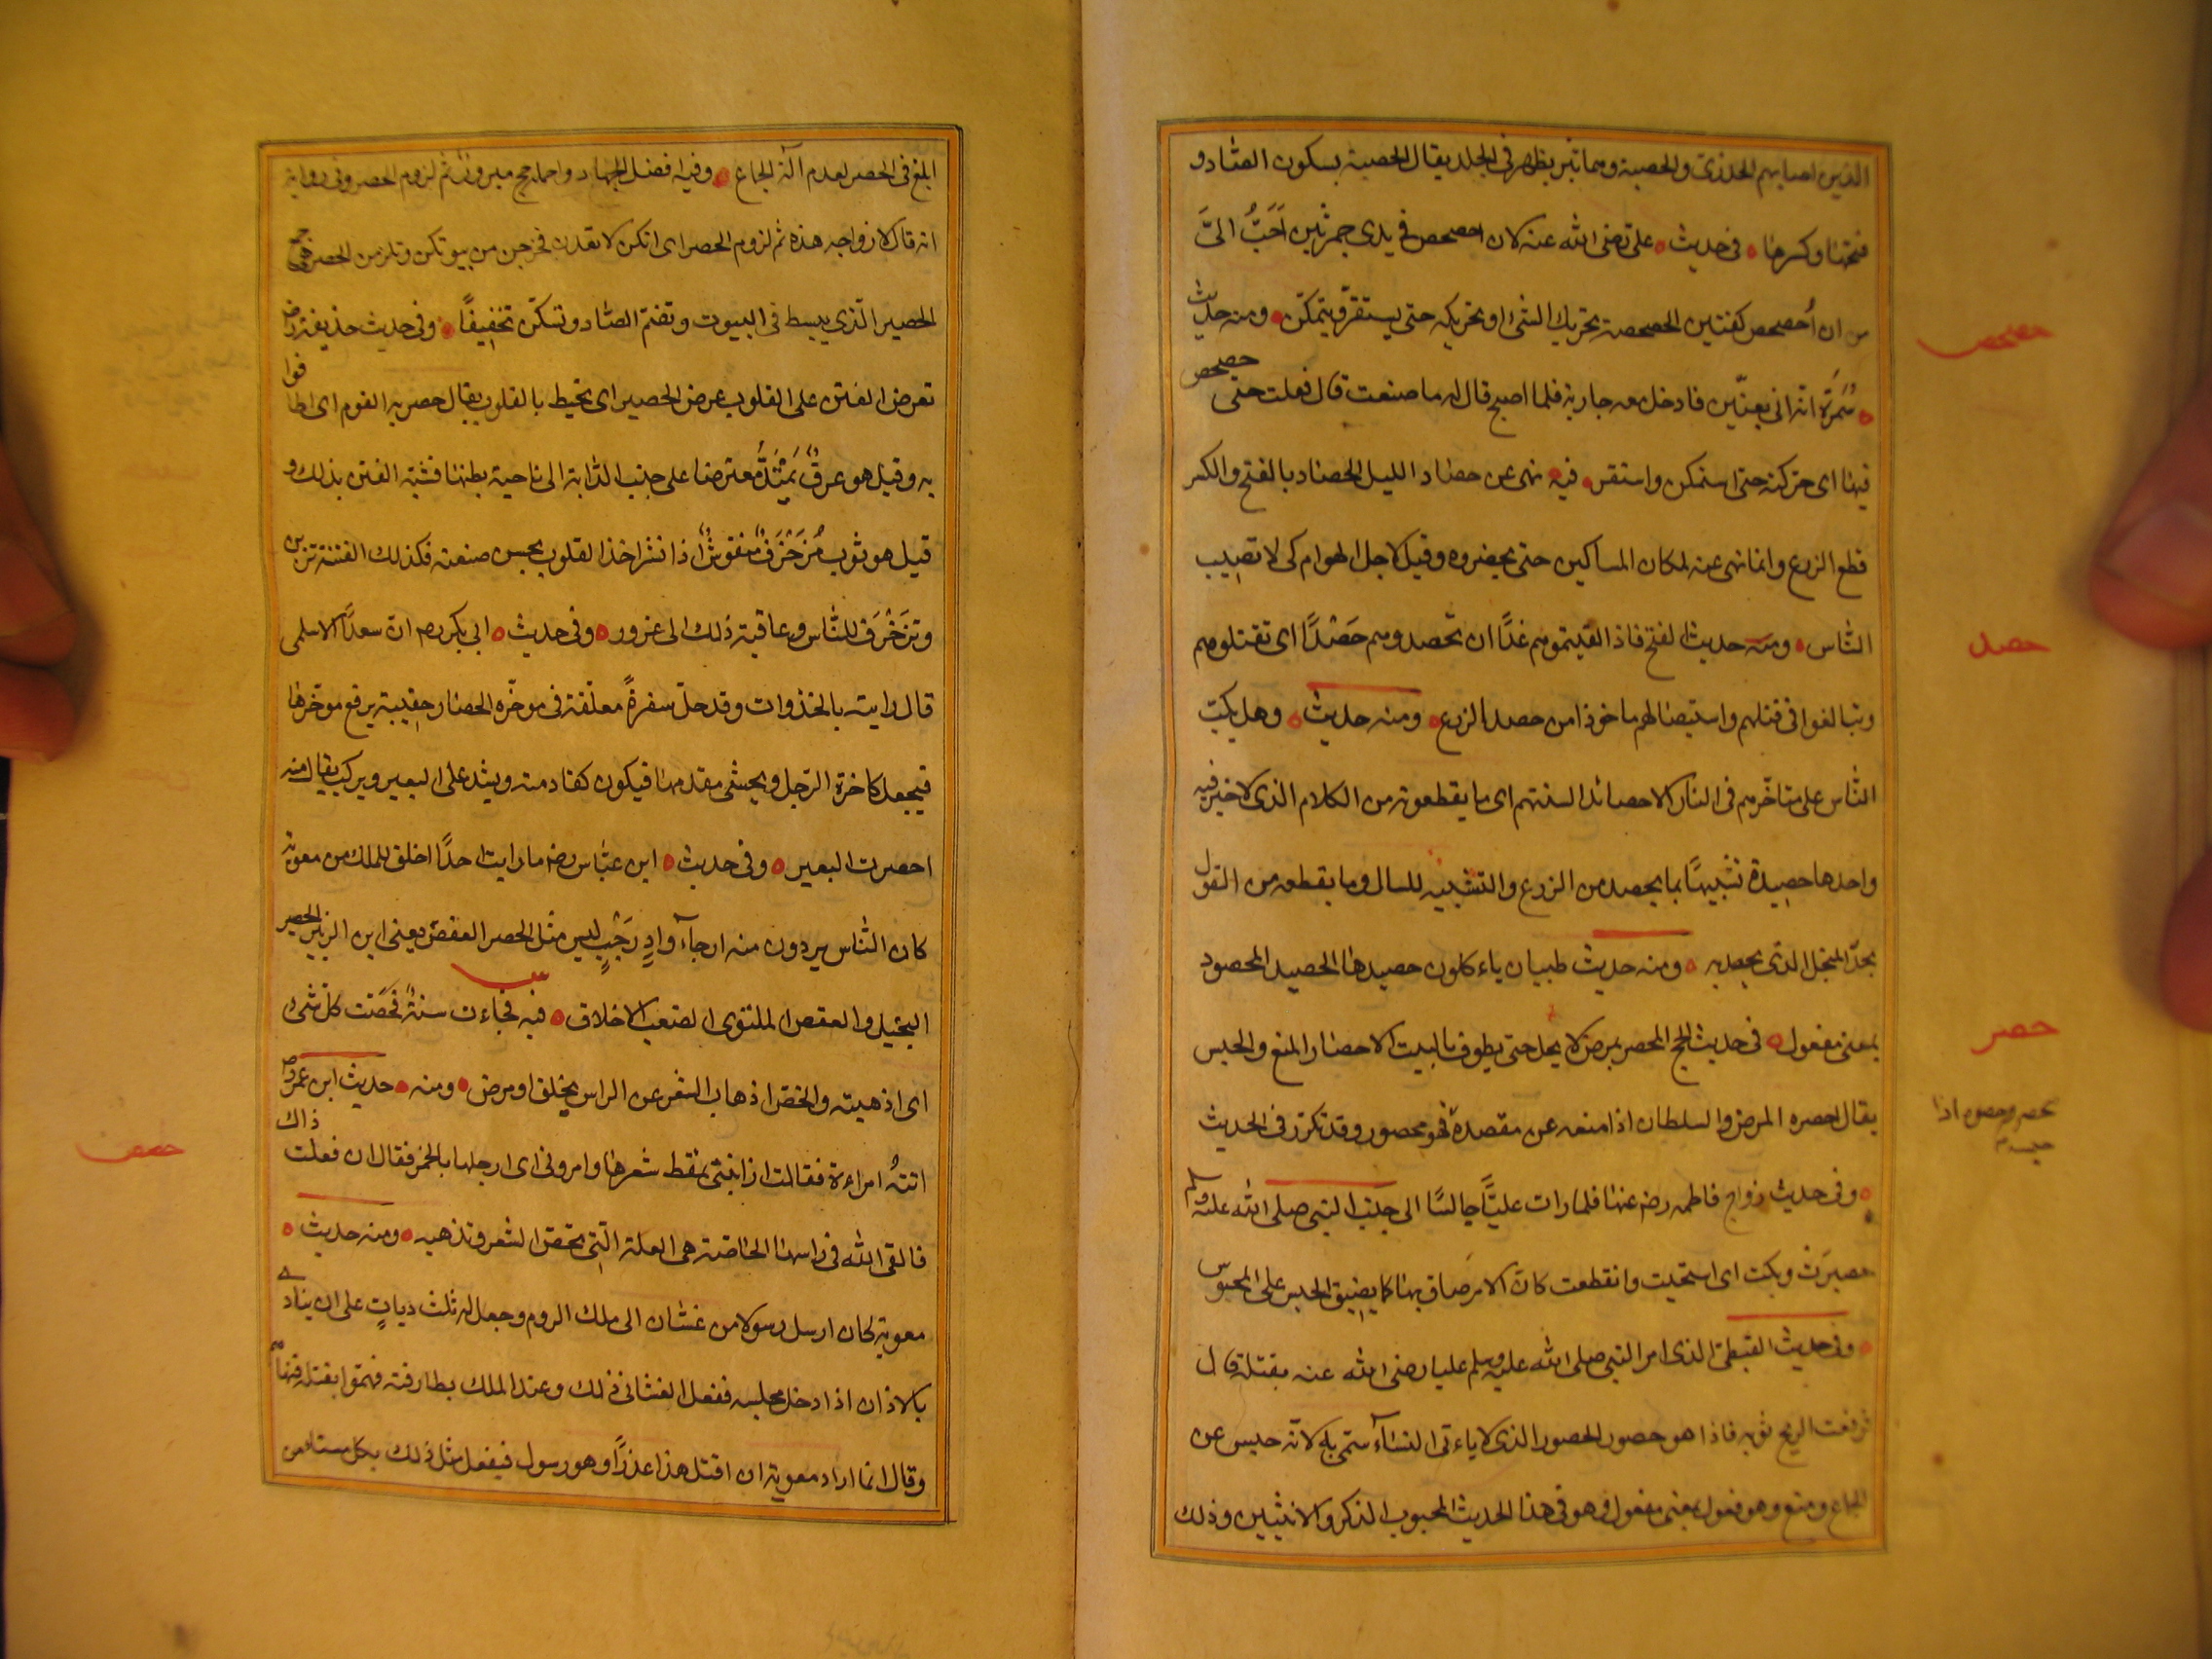 الذين اصابهم الجدرى والحصبة وهما بثر يظهر فى الجلد يقال الحصبة بسكون الصّاد و
فتحها وكسرها فى حديث على رضى الله عنه لان احصحص فى يدى جمرتين اَحَبُّ الىَّ
من ان اُحصحص كفتين الحصحصة تحريك الشئ او تحريكه حتى يستقرّ ويتمكّن ومنه حديث
حصحص
سَمُرَة انه اتى بعنّين فادخل معه جارية فلما اصبح قال له ما صنعت قال فعلت حتى
فيها اى حركته حتى استمكن واستقر فيه نهى عن حصاد الليل الحصاد بالفتح والكسر
قطع الزرع وانما نهى عنه لمكان المساكين حتى يحضروه وقيل لاجل الهوام كى لا تصيب
النّاس ومنه حديث الفتح فاذا لقيتموهم غدًا ان تحصدوهم حَصْدًا اى تقتلوهم
وتبالغوا فى قتلهم واستيصالهم ماخوذا من حصد الزرع ومنه حديث وهل يكبّ
النّاس على مناخرهم فى النار الا حصائد السنتهم اى ما يقطعونه من الكلام الذى لا خير فيه
واحدها حصِيدة تشبيهًا بما يحصد من الزرع والتشبيه للسان وما يقطعه من القول
بحدّ المنجل الذى يحصد به ومنه حديث ظبيان ياءكلون حصيدها الحصيد المحصود
بمعنى مفعول فى حديث الحج المحصر بمرض لا يحل حتى يطوف بالبيت الاحصار المنع والحبس
يقال احصره المرض والسلطان اذا منعه عن مقصده فهو محصور وقد تكرّر فى الحديث
وفى حديث زواج فاطمه رضى عنها فلما رات عليًّا جالسًا الى جنب النبى صلى الله عليه وسلم
حصِرَت وبكت اى استحيت وانقطعت كانّ الامر ضاق بها كما يضيق الحبس على المحبوس
وفى حديث القبطى الذى امر النبى صلى الله عليه وسلم عليا رضى الله عنه بقتله قال
فرفعت الريح ثوبه فاذا هو حصور الحصور الذى لا ياءتى النسآء سمّى به لانّه حبس عن
الجماع ومنع وهو فعول بمعنى مفعول وهو فى هذا الحديث المجبوب الذكر والانثيين وذلك
حصحص
حصد
حصر
ابلغ فى الحصر لعدم آلة الجماع وفيه افضل الجهاد واجمله حج مبرور ثم لزوم الحصر وفى رواية
انه قال لازواجه هذه ثم لزوم الحصر اى انكن لا تعدن تخرجن من بيوتكن وتلزمن الحصر جمع
الحصير الّذى يبسط فى البيوت وتضمّ الصّاد وتسكّن تخفيفًا وفى حديث حذيفة رض
تعرض الفتن على القلوب عرض الحصير اى تحيط بالقلوب يقال حصر به القوم اى اطافوا
به وقيل هو عرقٌ يَمْتَدُّ معترضا على جنب الدابة الى ناحية بطنها فشبّه الفتن بذلك و
قيل هو ثوب مُزَخْرَفٌ منقوشٌ اذا نشر اخذ القلوب بحسن صنعته فكذلك الفتنة تزين
وتزَخْرَف للنّاس وعاقبة ذلك الى غرور وفى حديث ابى بكر رض ان سعدًا الاسلمى
قال رايته بالخذوات وقد حلّ سفرةً معلّقة فى موخّره الحصار حقيبة يرفع موخّرها
فيجعل كاخرة الرّحل ويحشى مقدمها فيكون كقادمته ويشد على البعير ويركب يقال منه
احصرت البعير وفى حديث ابن عبّاس رض ما رايت احدًا اخلق للملك من معوية
كان النّاس يردون منه ارجآء وادٍ رَحْبٍ ليس مثل الحصر العقص يعنى ابن الزبير الحصر
البخيل والعقص الملتوى الصعب الاخلاق فيه فجاءت سنةٌ فحَصّت كل شئ
اى اذهبته والحَصّ اذهاب الشعر عن الراس بحلق او مرض ومنه حديث ابن عمر رض
اتتهُ امراءة فقالت ان ابنتى تمعّط شعرها وامرونى ان ارجلها بالخمر فقال ان فعلت ذاك
فالقى الله فى راسها الحاصّة هى العلة الّتى تحصّ الشعر وتذهبه ومنه حديث
معوية كان ارسل رسولا من غسّان الى ملك الروم وجعل له ثلث دياتٍ على ان ينادى
بالاذان اذا دخل مجلسه ففعل الغسّانى ذلك وعند الملك بطارقته فهمّوا بقتله فنهاهم
وقال انما اراد معوية ان اقتل هذا غدرًا وهو رسول فيفعل مثل ذلك بكل مستامن
حصص